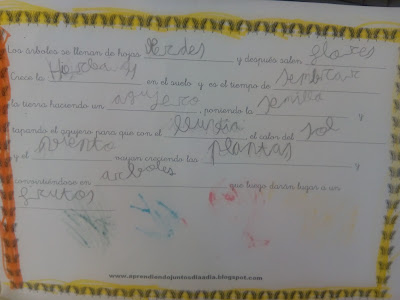 Los árboles se llenan de hojas verdes y después salen flores
Crece la Hierba en el suelo y es el tiempo de sembrar
la tierra haciendo un agujero, poniendo la semilla y
tapando el agujero para que con el lluvia, el calor del sol
y el viento vayan creciendo las plantas y
convirtiéndose en arboles que luego darán lugar a un
frutos
www.aprendiendojuntosdiaadia.blogspot.com